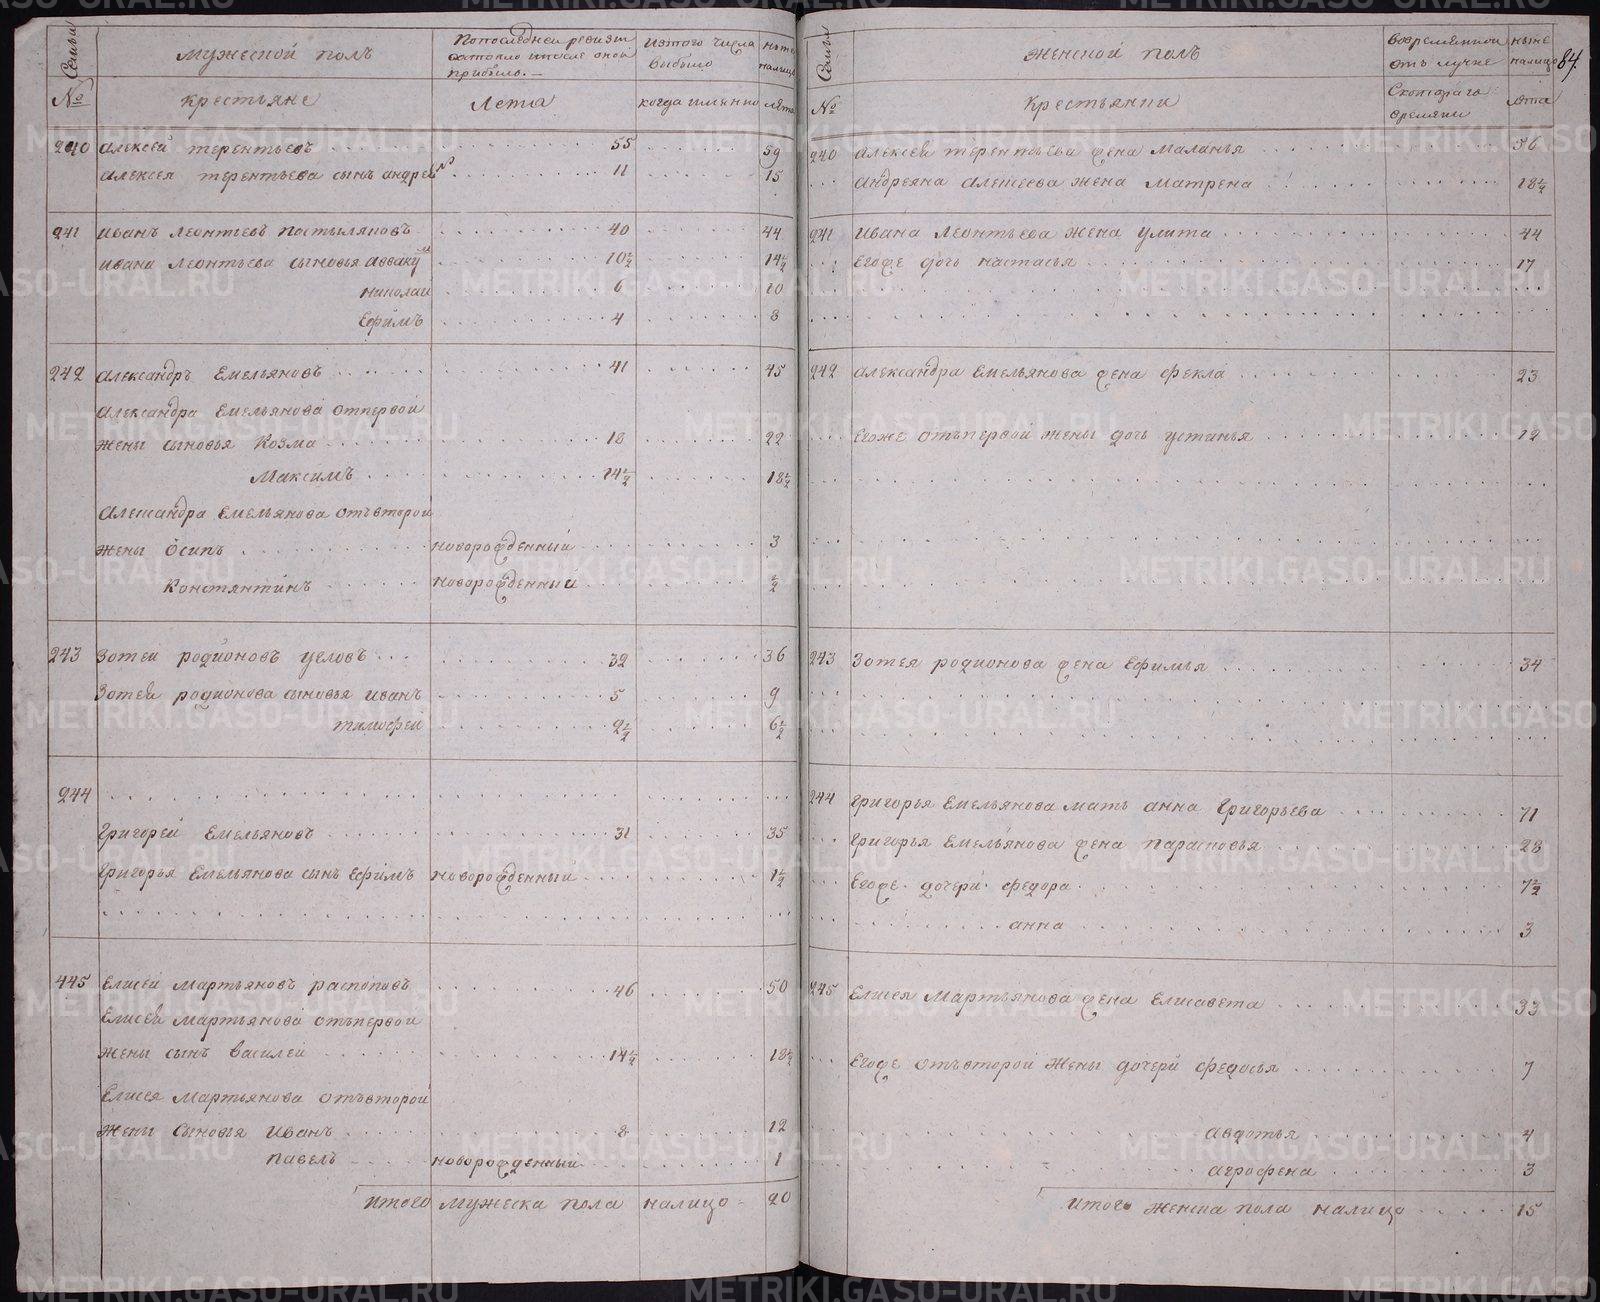 Семьи
Мужеской полъ
По последней ревизи состояло и после оной прибыло.
Изтого числа выбыло
ныне налицо
№
крестьяне
Лета
когда имянно
лета
240 Алексей терентьевъ 55 59
Алексея терентьева сынъ андреянъ 11 15
241 Иванъ Леонтьевъ постыляковъ 40 44
Ивана Леонтьева сыновья аввакумъ 10½ 14½
николай 6 10
Ефимъ 4 8
242 Александръ Емельяновъ 41 45
Александра Емельянова отпервой
жены сыновья Козма 18 22
Максимъ 14½ 18½
Александра Емельянова отъвторой
жены Осипъ новорожденный 3
Константинъ новорожденный ½
243 Зотей родионовъ 32 36
Зотея родионова сыновья иванъ 5 9
тимофей 2½ 6½
244
Григорей Емельяновъ 31 35
Григорья Емельянова сынъ Ефимъ новорожденный 1½
445 Елисей Мартьяновъ распоповъ 46 50
Елисея Мартьянова отъпервой
жены сынъ василей 14½ 18½
Елисея Мартьянова отъвторой
жены Сыновья Иванъ 8 12
павелъ новорожденный 1
Итого мужеска пола налицо 20
Семьи
Женской полъ
Вовременной отлучке
ныне налицо
84.
№
Крестьянки
Скотораго времяни
лета
240 Алексея терентьева жена Маланья 56
Андреяна Алексеева жена Матрена 18½
241 Ивана Леонтьева жена улита 44
Егоже дочь настасья 17
242 Александра Емельянова жена фекла 23
Егоже отъпервой жены дочь устинья 12
243 Зотея родионова жена Ефимья 34
244 Григорья Емельянова мать анна Григорьева 71
Григорья Емельянова жена парасковья 28
Егоже дочери федора 7½
анна 3
245 Елисея Мартьянова жена Елисавета 33
Егоже отъвторой жены дочери федосья 7
авдотья 4
агрофена 3
Итого женска пола налицо 15
METRIKI.GASO-URAL.RU